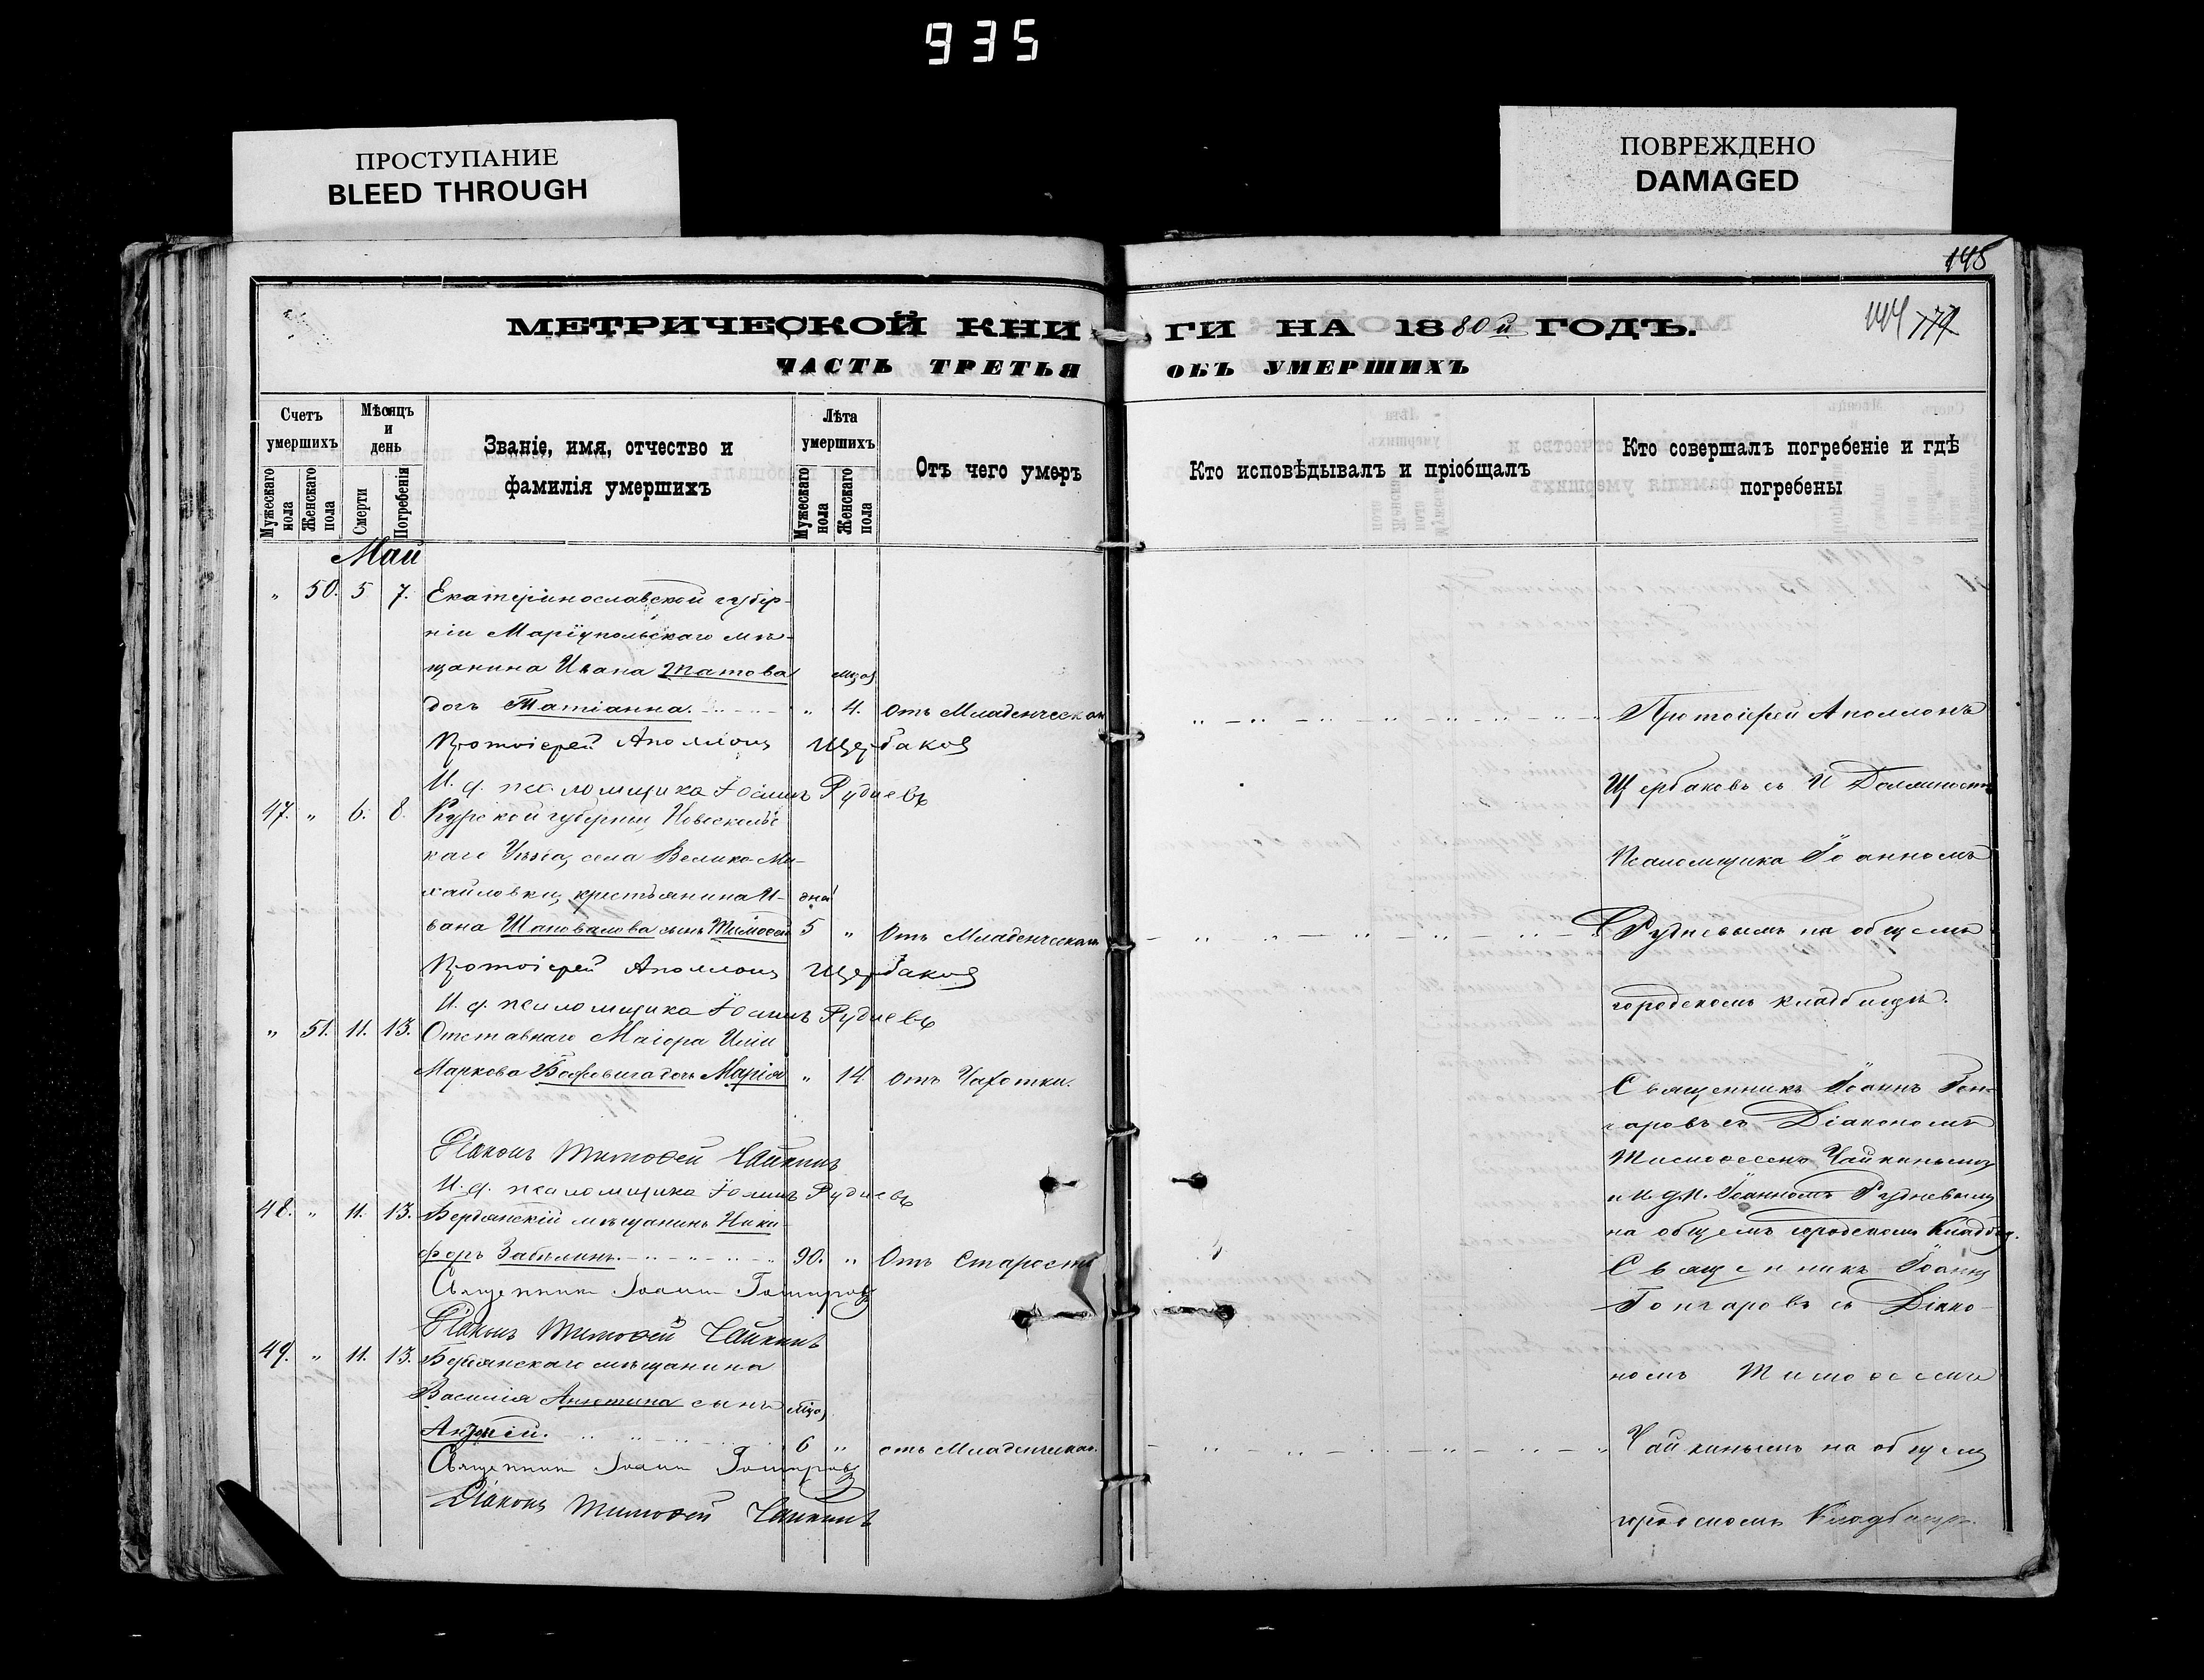 935
ПРОСТУПАНИЕ
BLEED THROUGH
ПОВРЕЖДЕНО
DAMAGED
145
144 174
МЕТРИЧЕСКОЙ КНИ
ЧАСТЬ ТРЕТЬЯ
ГИ НА 1880й ГОДЪ.
ОБЪ УМЕРШИХЪ
Счетъ умершихъ
Мужескаго пола
Женскаго пола
Мѣсяцъ и день
Смерти
Погребенія
Званіе, имя, отчество и фамилія умершихъ
Лѣта умершихъ
Мужескаго пола
Женскаго пола
Отъ чего умеръ
Кто исповѣдывалъ и пріобщалъ
Кто совершалъ погребеніе и гдѣ погребены
Май
" 50. 5 7. Екатеринославской губер-
ніи Маріупольскаго мѣ-
щанина Ивана
дочь Татіанна. " 4. Отъ Младенческой
Протоіерей Аполлонъ Щербаковъ
И. д. псаломщика Іоаннъ Рудневъ
47. " 6. 8. Курской губерніи, Новооскольс
каго Уѣзда, села Велико-Ми-
хайловки, крестьянина И-
вана Шаповалова сынъ Тимофей дня 5 " Отъ Младенческой
Протоіерей Аполлонъ Щербаковъ
И. д. псаломщика Іоаннъ Рудневъ
" 51. 11. 13. Отставнаго Маіора Иліи
Маркова дочь Марія " 14. Отъ Чахотки.
Діаконъ Тимофей Чайкинъ
И. д. псаломщика Іоаннъ Рудневъ
48. " 11. 13. Бердянскій мѣщанинъ Ники
форъ Забѣлинъ. 90. " Отъ Старости
Священникъ Іоаннъ Гончаровъ
Діаконъ Тимофей Чайкинъ
49. " 11. 13. Бердянскаго мѣщанина
Василія сынъ
6 " отъ Младенческой.
Священникъ Іоаннъ Гончаровъ
Діаконъ Тимофей Чайкинъ
Протоіерей Аполлонъ
Щербаковъ съ И Должность
Псаломщика Іоанномъ
Рудневымъ на общемъ
городскомъ кладбищѣ.
Священникъ Іоаннъ Гон-
чаровъ съ Діакономъ
Тимофеемъ Чайкинымъ
и И. д. П. Іоанномъ Рудневымъ
на общемъ городскомъ Кладбищ.
Священникъ Іоаннъ
Гончаровъ съ Діако-
номъ Тимофеемъ
Чайкинымъ на общемъ
городскомъ Кладбищѣ.